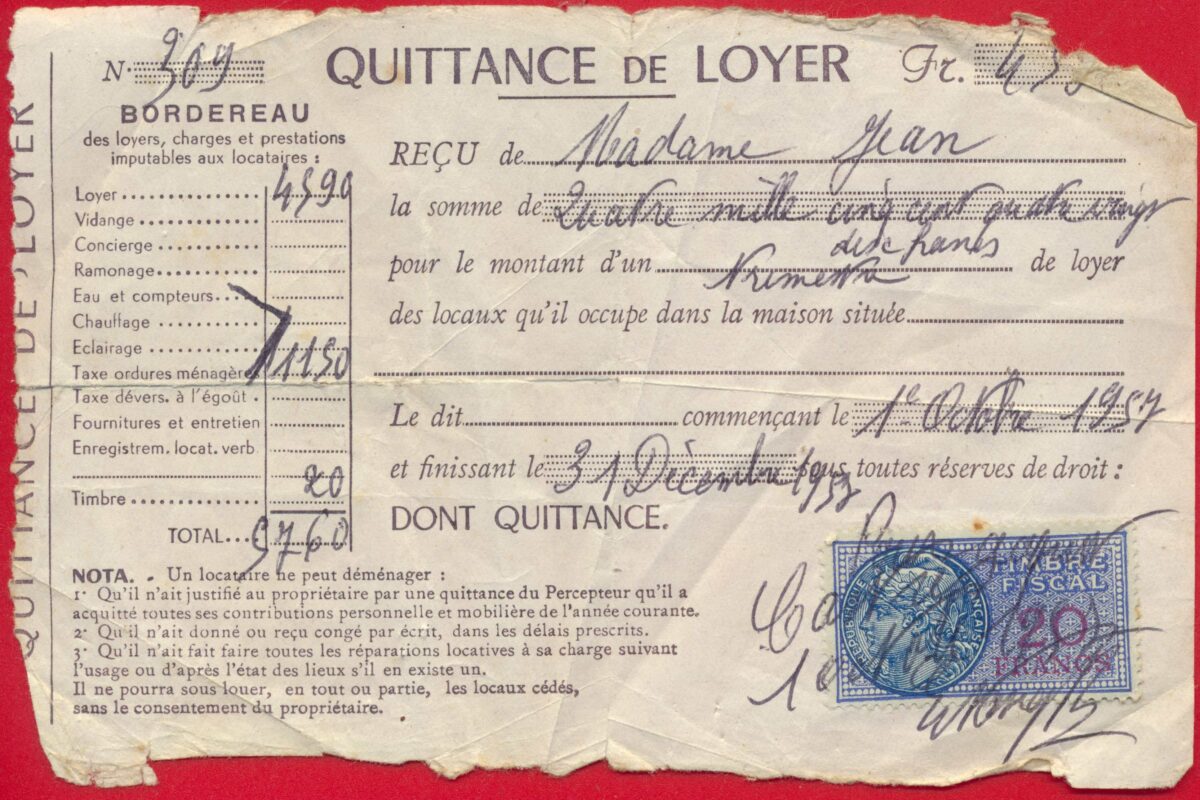 QUITTANCE DE LOYER
N° 309
QUITTANCE DE LOYER
Fr.
BORDEREAU
des loyers, charges et prestations
imputables aux locataires :
Loyer 4590
Vidange
Concierge
Ramonage
Eau et compteurs
Chauffage
Eclairage
Taxe ordures ménagères 1150
Taxe dévers. à l'égoût
Fournitures et entretien
Enregistrem. locat. verb
Timbre 20
TOTAL 5760
REÇU de Madame Jean
la somme de Quatre mille cinq cent quatre vingt
dix francs
pour le montant d'un de loyer
des locaux qu'il occupe dans la maison située
Le dit commençant le 1er Octobre 1957
et finissant le 31 Décembre 1957 sous toutes réserves de droit :
DONT QUITTANCE.
NOTA. - Un locataire ne peut déménager :
1° Qu'il n'ait justifié au propriétaire par une quittance du Percepteur qu'il a
acquitté toutes ses contributions personnelle et mobilière de l'année courante.
2° Qu'il n'ait donné ou reçu congé par écrit, dans les délais prescrits.
3° Qu'il n'ait fait faire toutes les réparations locatives à sa charge suivant
l'usage ou d'après l'état des lieux s'il en existe un.
Il ne pourra sous louer, en tout ou partie, les locaux cédés,
sans le consentement du propriétaire.
RÉPUBLIQUE FRANÇAISE
TIMBRE
FISCAL
20
FRANCS